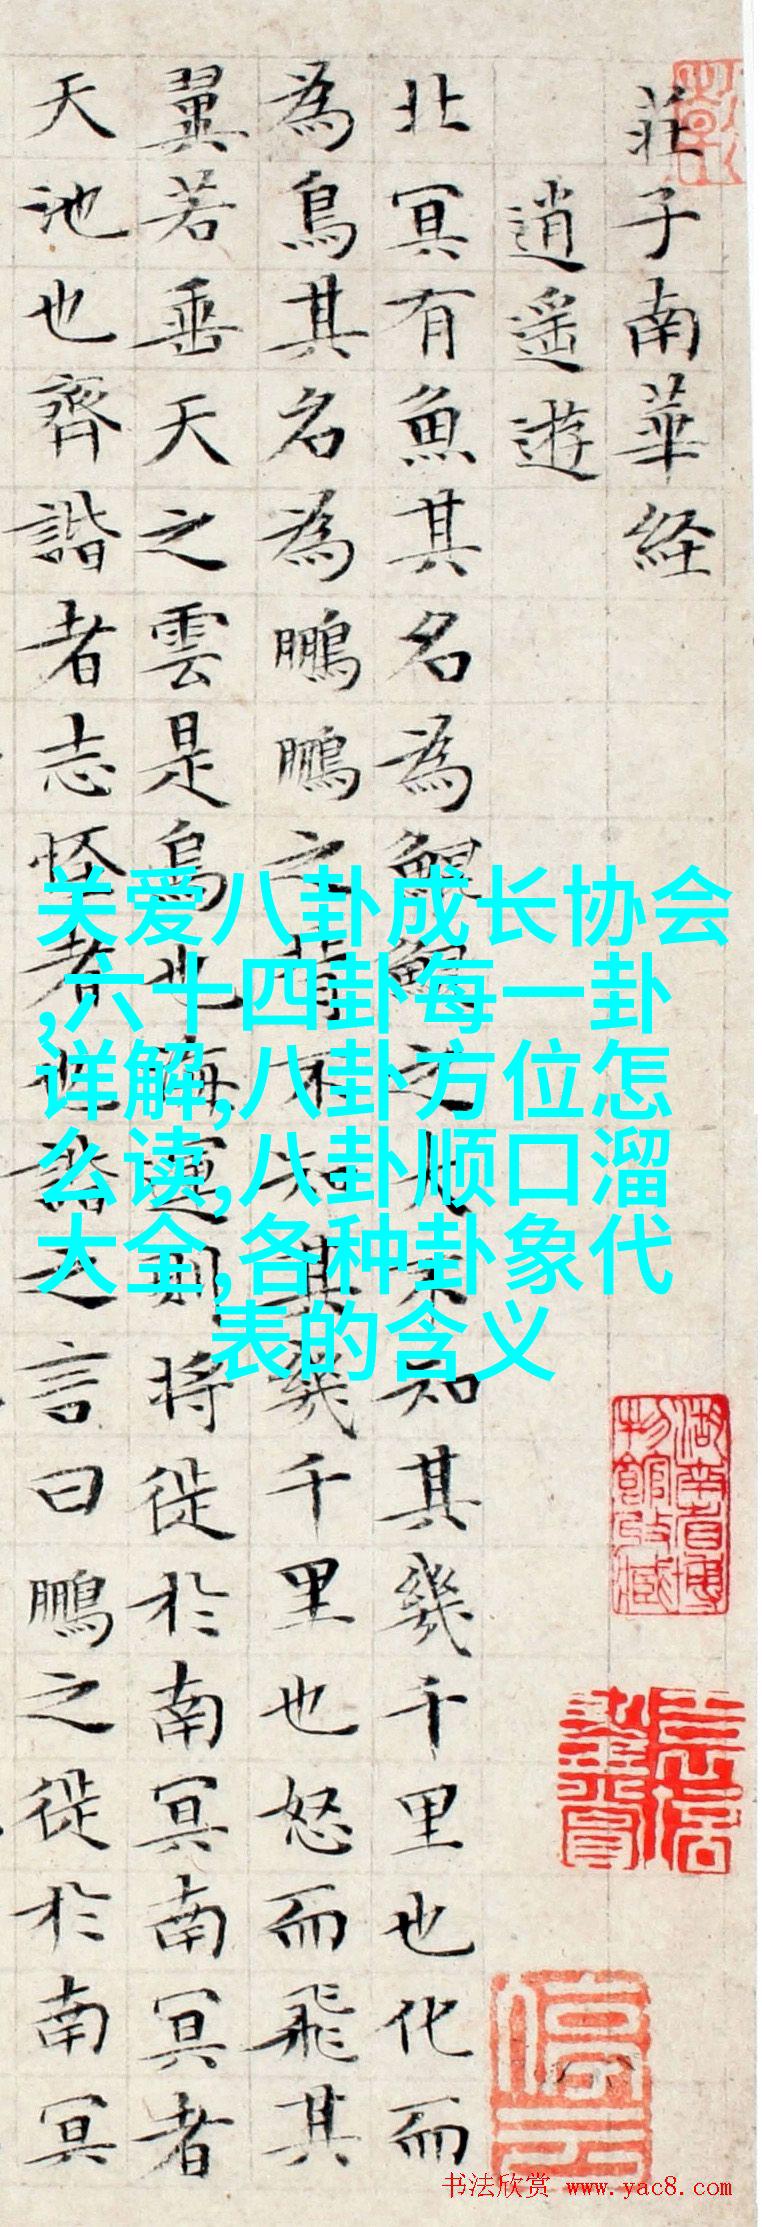 莊子南華経
逍遥遊
北冥有魚其名為鯤鯤之大不知其幾千里也化而
為鳥其名為鵬鵬之背不知其幾千里也怒而飛其
翼若垂天之雲是鳥也海運則將徙於南冥南冥者
天池也齊諧者志怪者也諧之言曰鵬之徙於南冥
关爱八卦成长协会
,六十四卦每一卦
详解,八卦方位怎
么读,八卦顺口溜
大全,各种卦象代
表的含义
湖南省博
物館收藏
书法欣赏 www.yac8.com